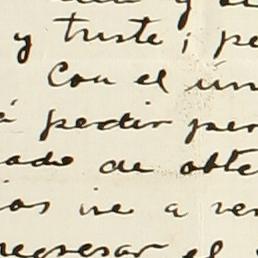 y triste; pe
Con el ún
é pedir per
ado de obte
ios iré a ver
regresar el